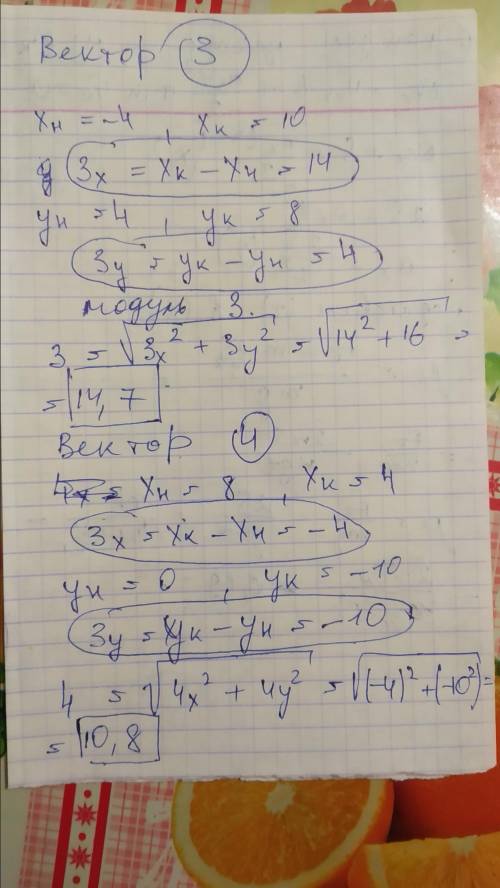 Вектор 3
xн = -4, xк = 10
3x = xк - xн = 14
yн = 4, yк = 8
3y = yк - yн = 4
модуль 3.
3 = √3x² + 3y² = √14² + 16 =
= 14,7
Вектор 4
xн = 8, xк = 4
3x = xк - xн = -4
yн = 0, yк = -10
3y = yк - yн = -10
4 = √4x² + 4y² = √(-4)² + (-10²) =
= 10,8